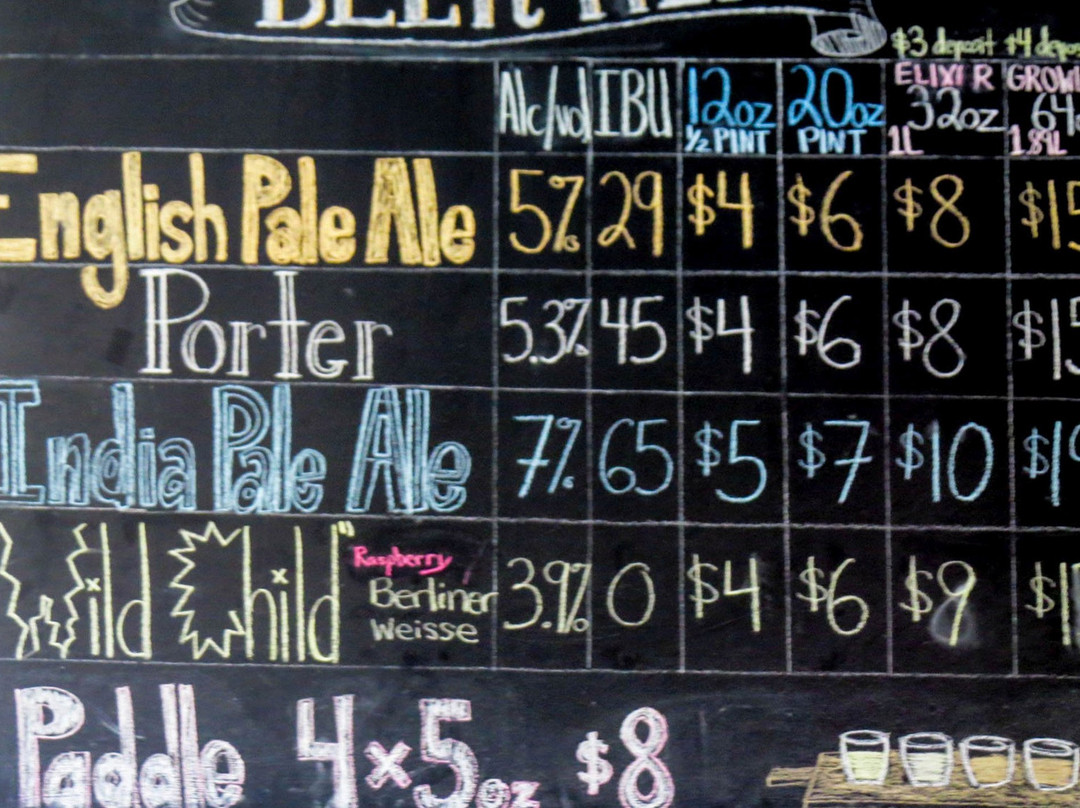 BEER
$3 deposit $4
Alc/vol IBU 12oz 20oz ELIXIR 32oz
½ PINT PINT 1L 1.89L
English Pale Ale 5% 29 $4 $6 $8
Porter 5.3% 45 $4 $6 $8
India Pale Ale 7% 65 $5 $7 $10
Wild Child" Raspberry Berliner Weisse 3.9% 0 $4 $6 $9
Paddle 4x5oz $8